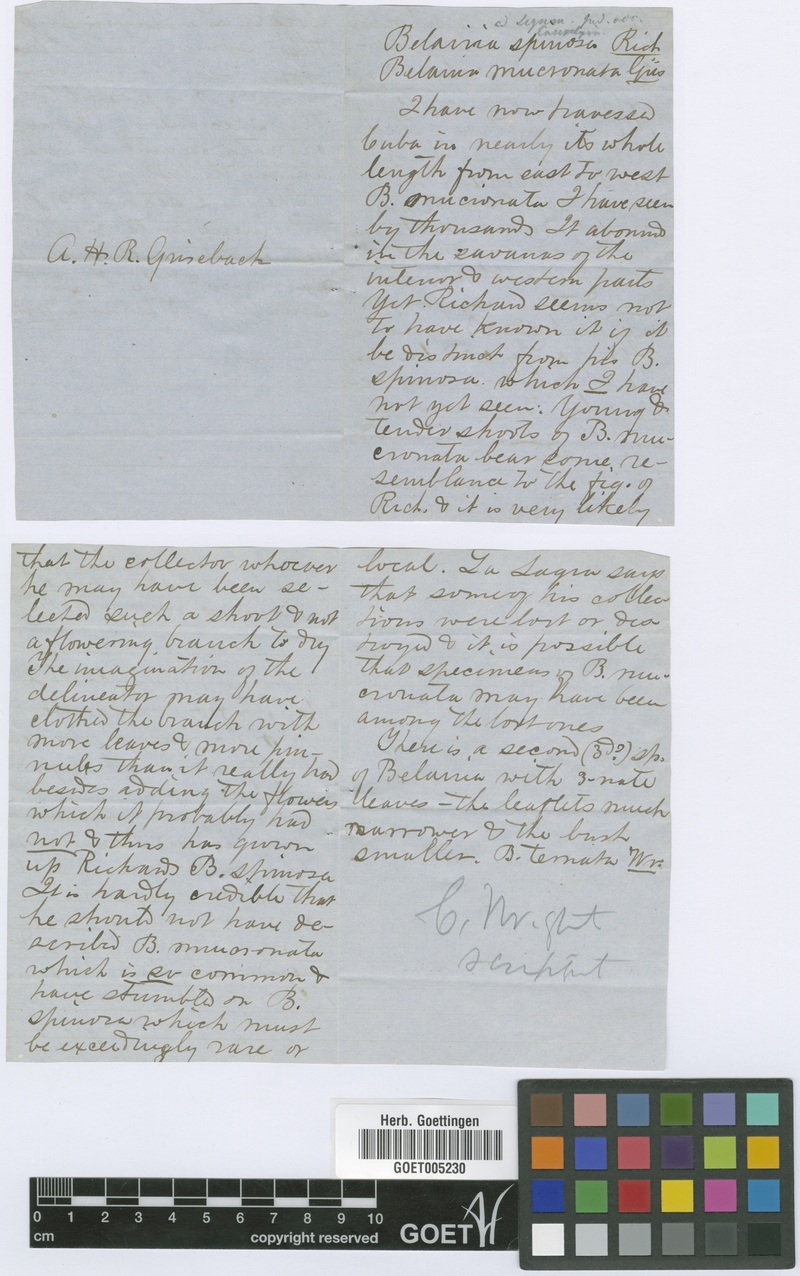 A. H. R. Grisebach
Belairia spinosa Rich
Belairia mucronata Gris
I have now traversed
Cuba in nearly its whole
length from east to west
B. mucronata I have seen
by thousands It abound
in the savanas of the
interior & western parts
Yet Richard seems not
to have known it if it
be distinct from his B.
spinosa which I have
not yet seen. Young &
tender shoots of B. mu-
cronata bear some re-
semblance to the fig. of
Rich. & it is very likely
that the collector whoever
he may have been se-
lected such a shoot & not
a flowering branch to dry
The imagination of the
delineator may have
clothed the branch with
more leaves & more pin-
nules than it really had
besides adding the flowers
which it probably had
not & thus has grown
up Richards B. spinosa
It is hardly credible that
he should not have de-
scribed B. mucronata
which is so common &
have stumbled on B.
spinosa which must
be exceedingly rare or
local. La Sagra says
that some of his collec
tions were lost or des
troyed & it is possible
that specimens of B. mu-
cronata may have been
among the lost ones
There is a second (3d?) sp.
of Belairia with 3-nate
leaves - the leaflets much
narrower & the bush
smaller. B. ternata Wr.
C. Wright
scripsit
Herb. Goettingen
GOET005230
0 1 2 3 4 5 6 7 8 9 10
cm
copyright reserved
GOET